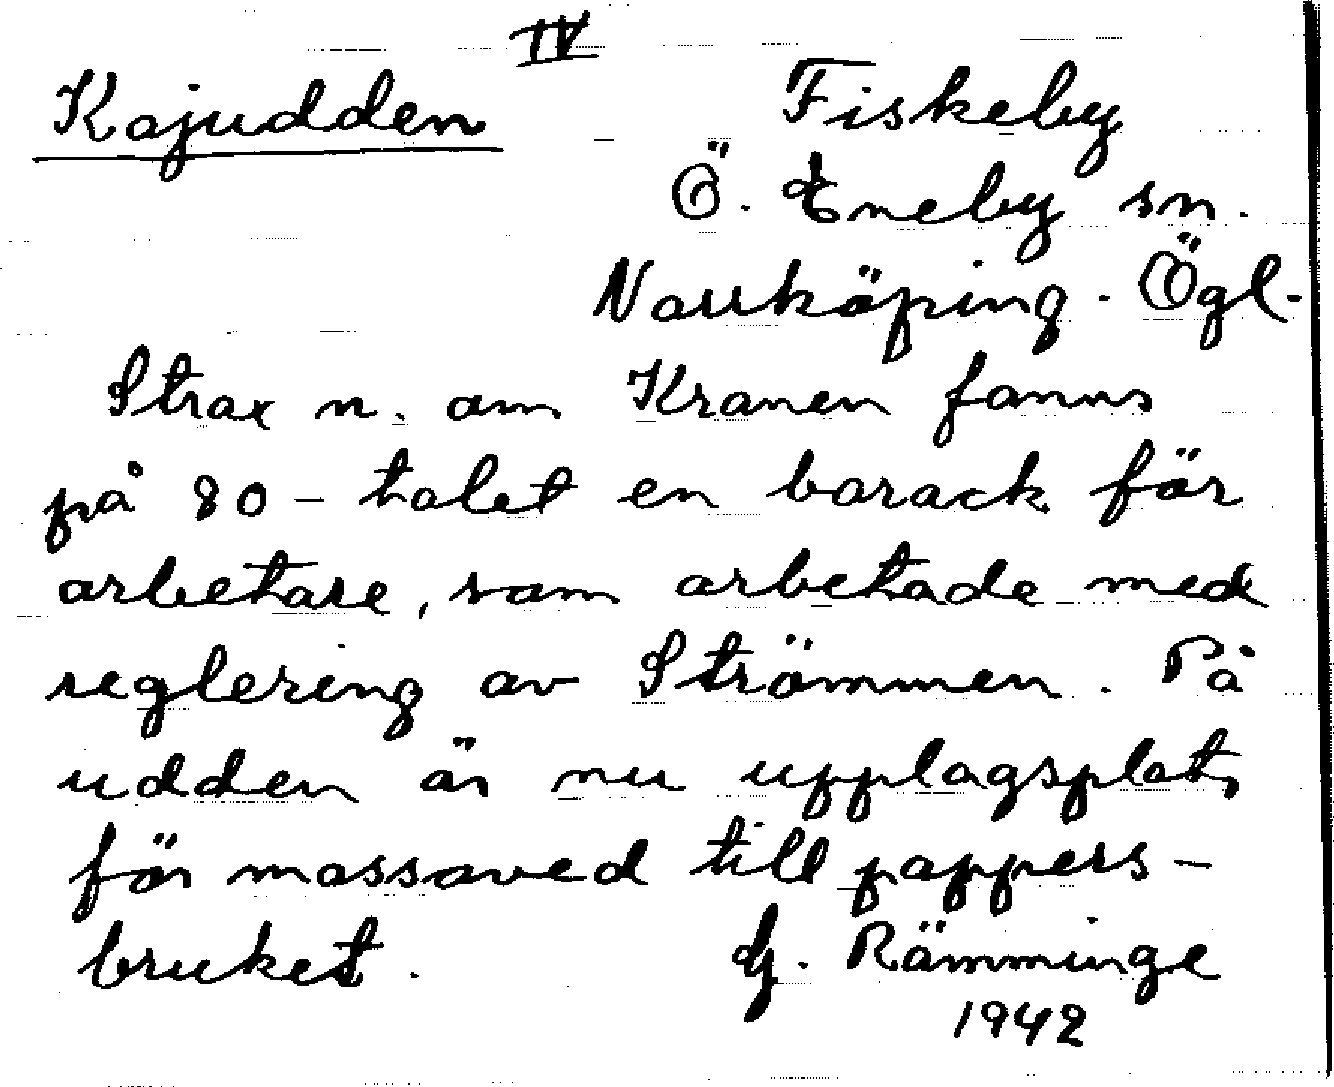 IV
Kajudden
Fiskeby
Ö. Eneby sn.
Norrköping. Ögl.
Strax n. om Kranen fanns
på 80-talet en barack för
arbetare, som arbetade med
reglering av Strömmen. På
udden är nu upplagsplats
för massaved till pappers-
bruket.
G. Rämminge
1942